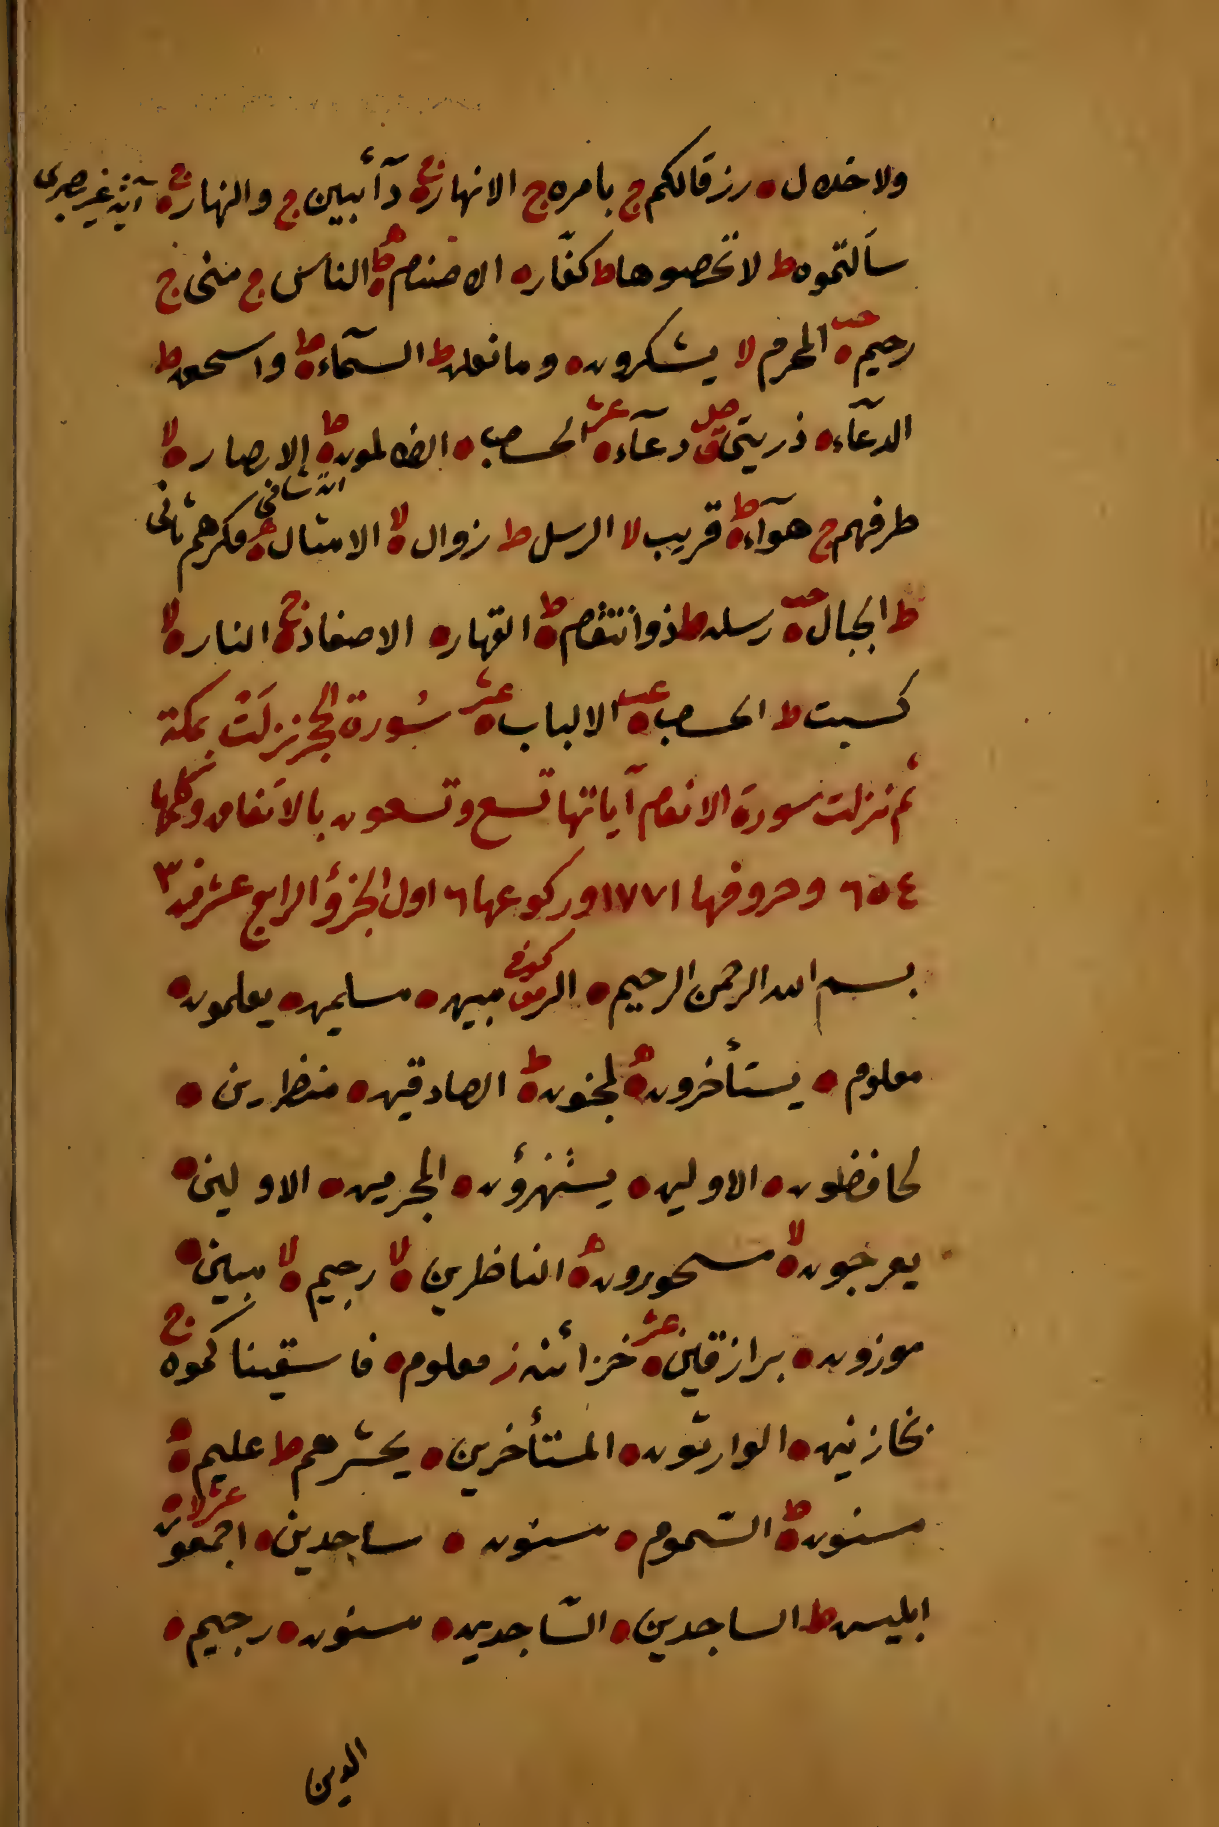 ولا خلال ه رزقا لكم ج بامره ج الانهار ج دآئبين ج والنهار ج آية غير بصرى
سألتموه ط لا تحصوها ط كفاره الاصنام ط الناس ج منى ج
رحيم ه المحرم لا يشكرون ه وما نعلن ط السمآء ط واسحق ط
الدعآء ه ذريتى ق صلى دعآء ه عشر الحساب ه الظالمون ط الابصار لا
طرفهم ج هوآء ط قريب لا الرسل ط زوال لا الامثال ه مكرهم ثانى
ط الجبال ه حب رسله ط ذوانتقام ط القهار ه الاصفاد ج النار لا
كسبت ط الحساب ه عب الالباب ه عشر سورة الحجر نزلت بمكة
ثم نزلت سورة الانعام آياتها تسع وتسعون بالاتفاق وكلمها
٦٥٤ وحروفها ١٧٧١ وركوعها ٦ اول الجزؤ الرابع عشر فيه ٣
بسم الله الرحمن الرحيم ه الر كوفى مبين ه مسلمين ه يعلمون ه
معلوم ه يستأخرون ه لمجنون ط الصادقين ه منظرين ه
لحافظون ه الاولين ه يستهزؤن ه المجرمين ه الاولين ه
يعرجون لا مسحورون ه الناظرين لا رجيم لا مبين ه
موزون ه برازقين ه عشر خزائنه ز معلوم ه فاسقيناكموه ج
بخازنين ه الوارثون ه المستأخرين ه يحشرهم ط عليم ه
مسنون ط السموم ه مسنون ه ساجدين ه اجمعون عشر لا
ابليس ط الساجدين ه الساجدين ه مسنون ه رجيم ه
الدين